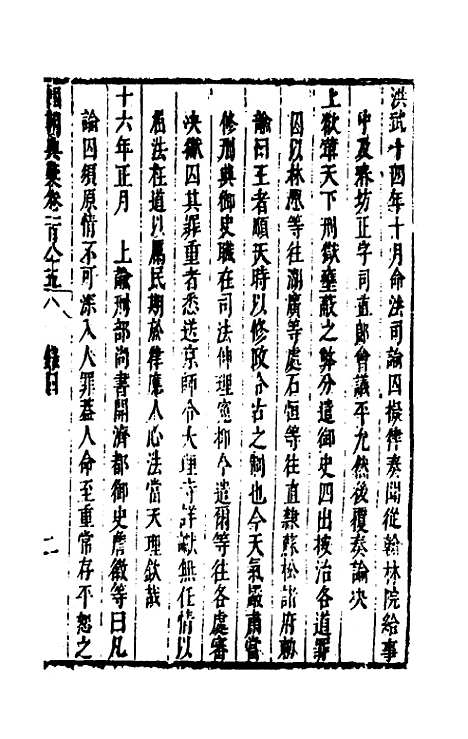 洪武十四年十月命法司論囚擬律奏聞從翰林院給事
中及春坊正字司直郎會議平允然後覆奏論决
上欲革天下刑獄壅蔽之弊分遣御史四出按治各道罪
囚以林愿等往湖廣等處石恒等往直隸蘇松諸府勑
諭曰王者順天時以修政令古之制也今天氣嚴肅當
修刑典御史職在司法伸理寃抑今遣爾等往各處審
决獄囚其罪重者悉送京師令大理寺詳讞無任情以
屈法在道以厲民期於律應人心法當天理欽哉
十六年正月　上諭刑部尚書開濟都御史詹徽等曰凡
論囚須原情不可深入人罪蓋人命至重常存平恕之
國朝典彙卷一百八十五　八　二